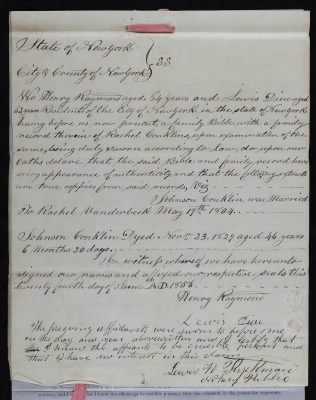 State of Newyork
City & County of Newyork } SS
We Henry Raymond aged 54 years and Lewis Dine aged
62 years Residents of the City of Newyork in the state of Newyork
having before us now present a family Bible with a family
record therein of Rachel Conklins, upon examination of the
same, being duly sworn according to Law, do upon our
oaths delare that the said Bible and family record have
every appearance of authenticity and that the following extracts
are true coppies from said records, Viz
Johnson Conklin was Married
To Rachel Vanderbeek May 19th 1804.
Johnson Conklin Dyed Novr 23. 1827 aged 46 years
6 Months 20 days.
In witness whereof we have hereunto
signed our names and affixed our respective seals this
twenty fourth day of June A.D. 1856
Henry Raymond
Lewis Dine
The foregoing affidavits were sworn to before me
on the day and year above written and I certify that
I know the affiants to be credible persons and
that I have no interest in this claim
Lewis W.
Notary Public